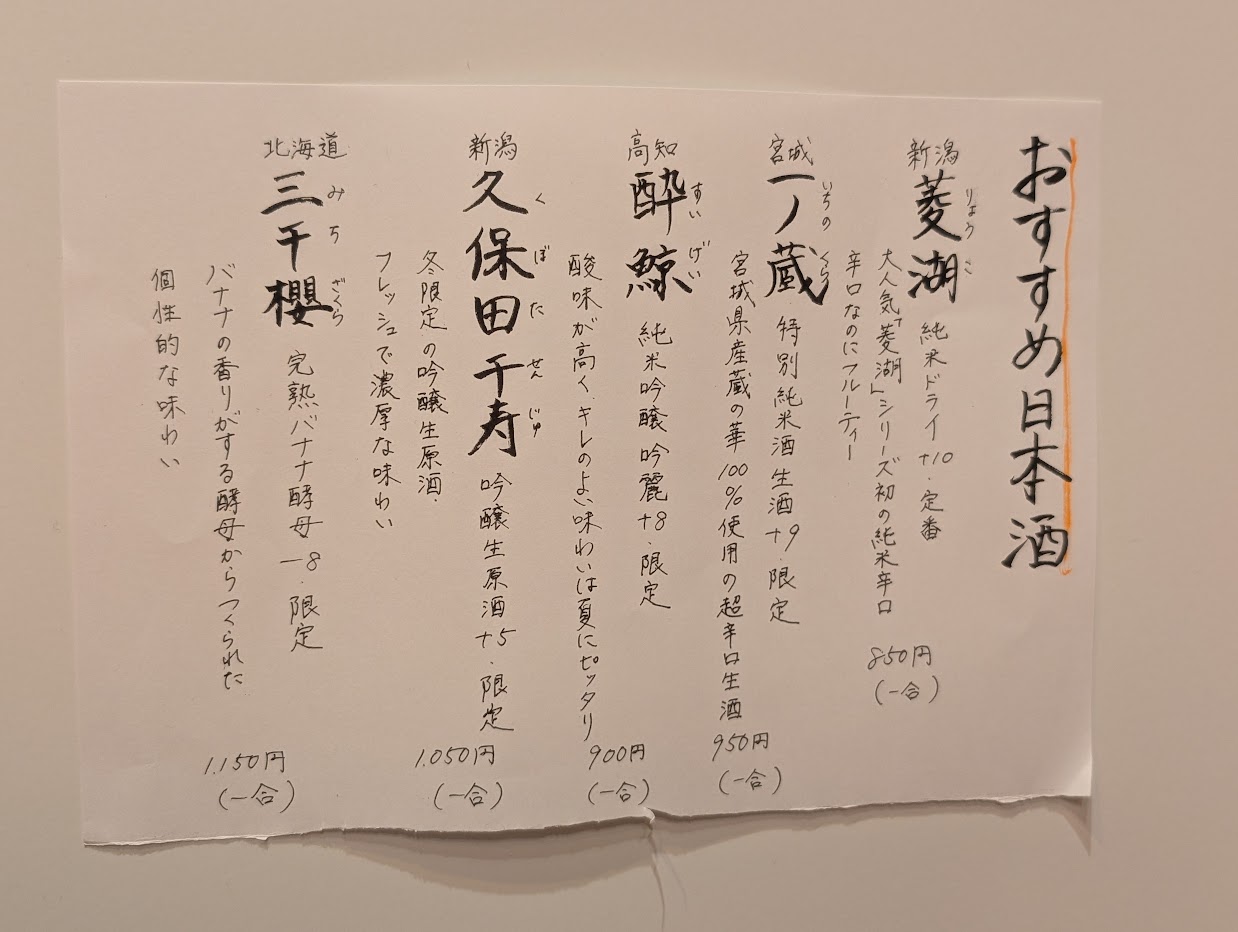 おすすめ日本酒
新潟
菱湖
りょうこ
純米ドライ +10・定番
大人気「菱湖」シリーズ初の純米辛口
辛口なのにフルーティー
850円
(一合)
宮城
一ノ蔵
いちのくら
特別純米酒生酒 +9・限定
宮城県産蔵の華100%使用の超辛口生酒
950円
(一合)
高知
酔鯨
すいげい
純米吟醸 吟麗 +8・限定
酸味が高く、キレのよい味わいは夏にピッタリ
900円
(一合)
新潟
久保田千寿
くぼたせんじゅ
吟醸生原酒 +5・限定
冬限定の吟醸生原酒。
フレッシュで濃厚な味わい
1.050円
(一合)
北海道
三千櫻
みちざくら
完熟バナナ酵母 -8・限定
バナナの香りがする酵母からつくられた
個性的な味わい
1.150円
(一合)